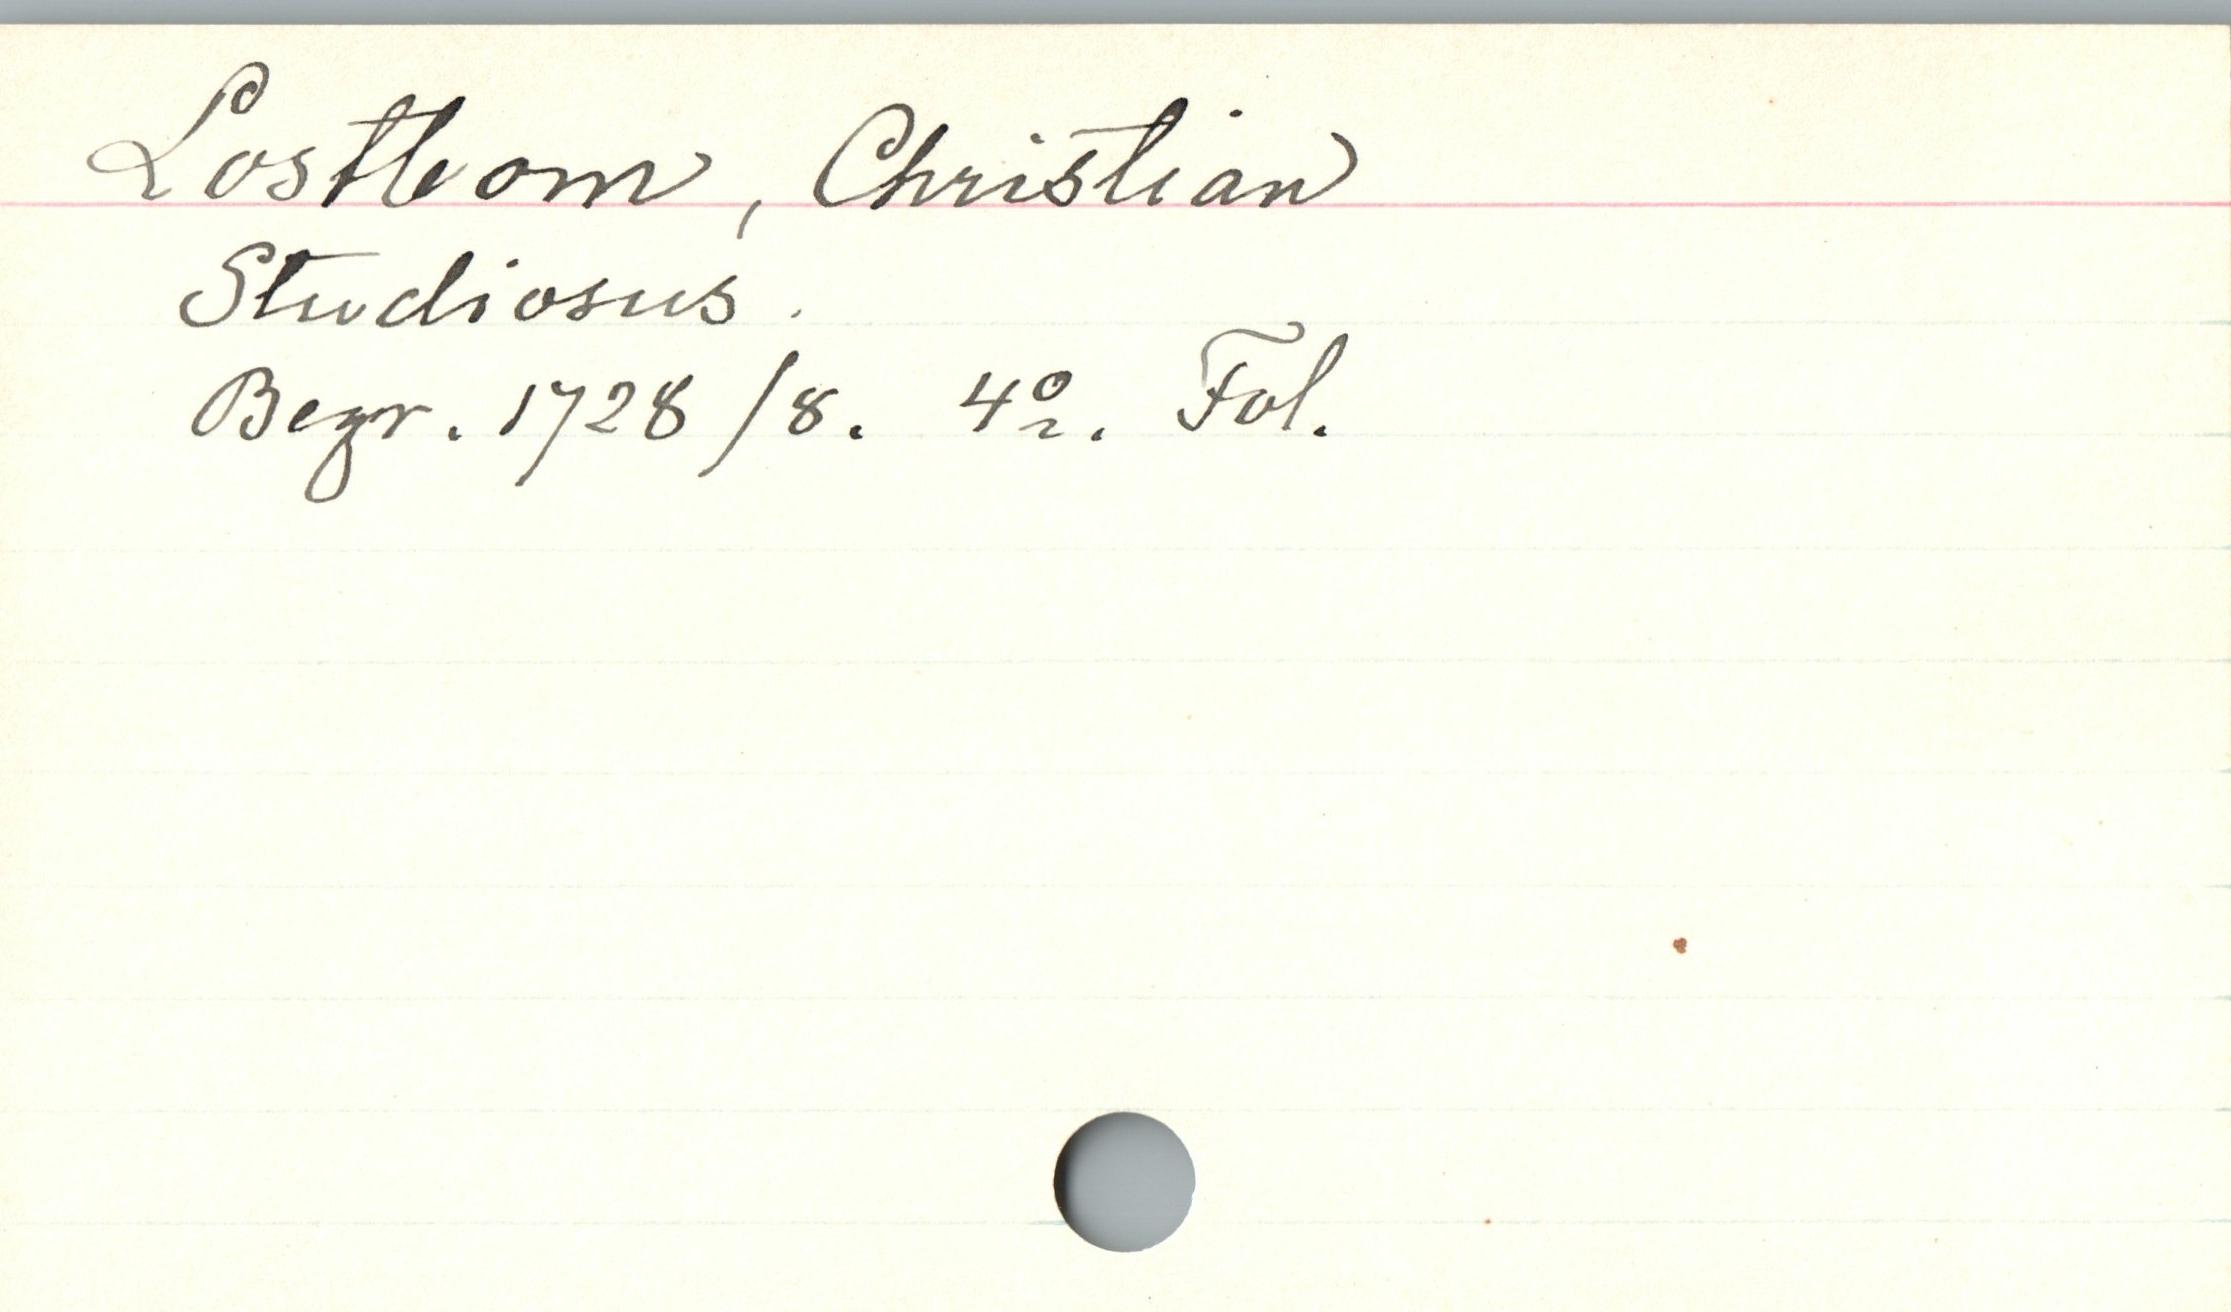 Lostbom, Christian
Studiosus.
Begr. 1728/8. 4º. Fol.